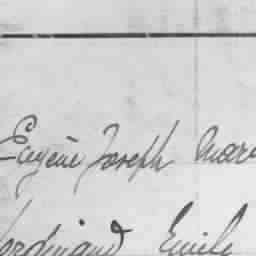 Eugène Joseph Mari
Ferdinand Emile